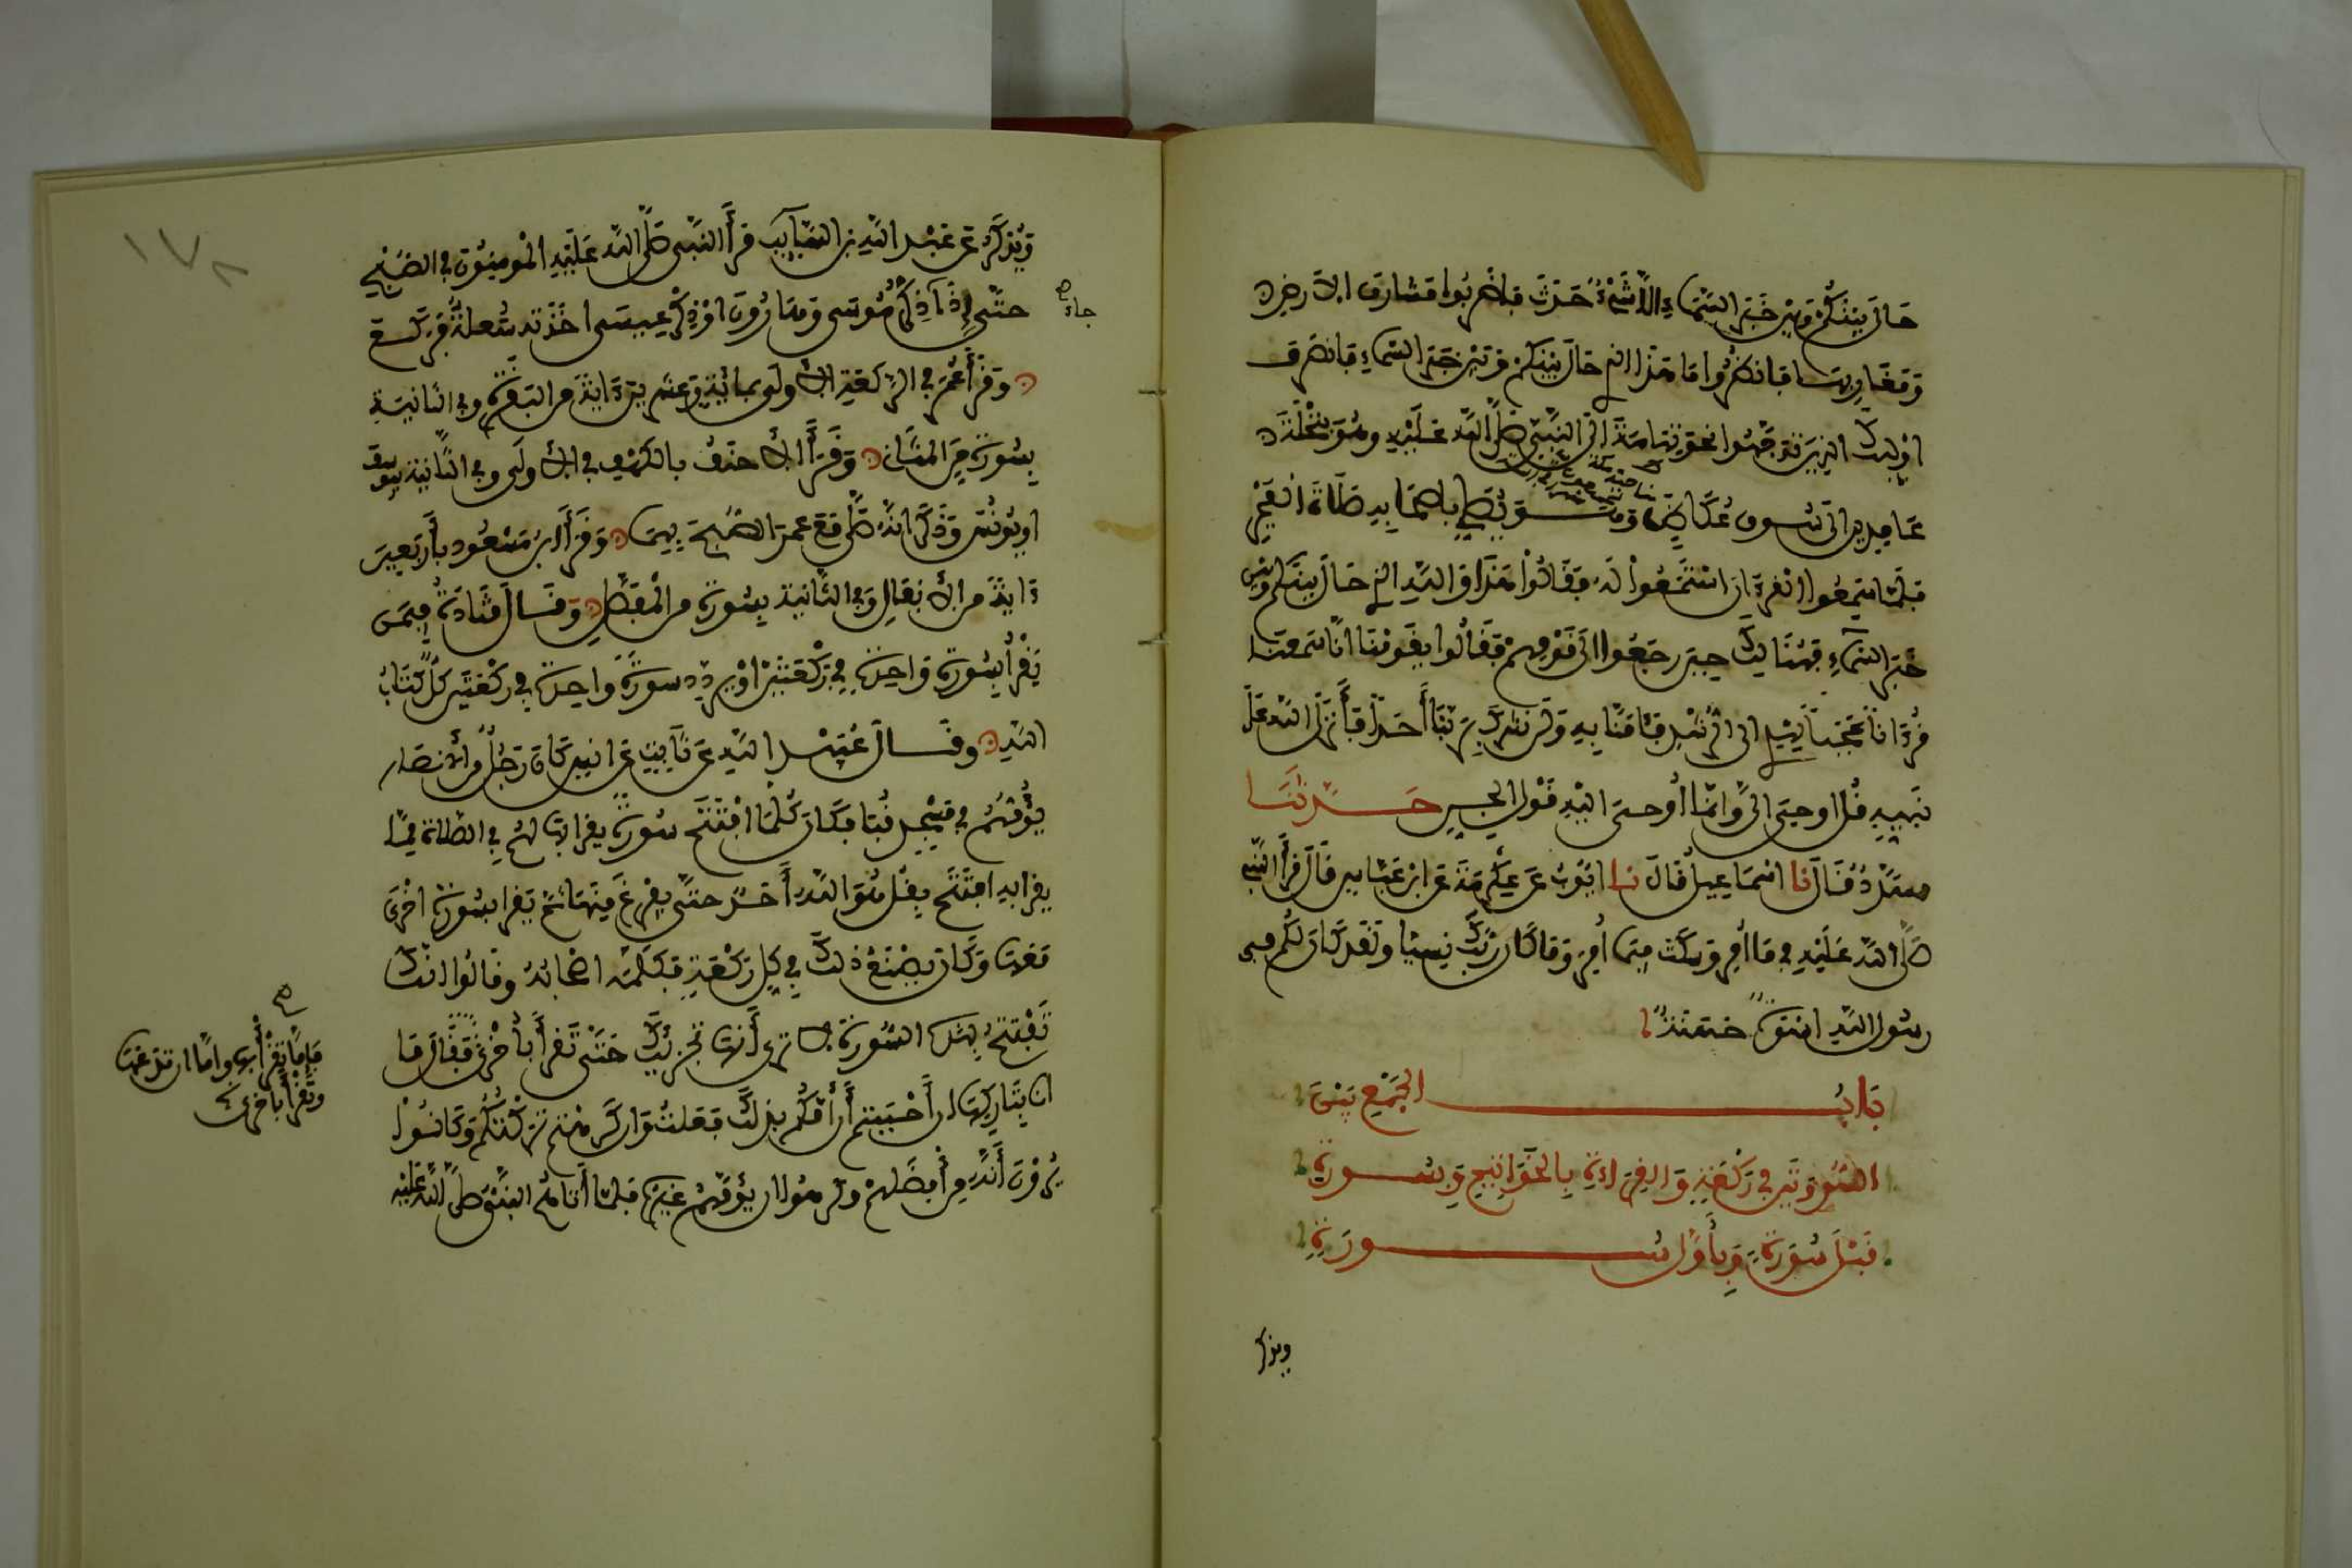 حَالَ بَيْنَكُمْ وَبَيْنَ خَبَرِ السَّمَاءِ إِلَّا شَيْءٌ حَدَثَ فَاضْرِبُوا مَشَارِقَ الْأَرْضِ
وَمَغَارِبَهَا فَانْظُرُوا مَا هَذَا الَّذِي حَالَ بَيْنَكُمْ وَبَيْنَ خَبَرِ السَّمَاءِ فَانْصَرَفَ
أُولَئِكَ الَّذِينَ تَوَجَّهُوا نَحْوَ تِهَامَةَ إِلَى النَّبِيِّ صَلَّى اللَّهُ عَلَيْهِ وَهُوَ بِنَخْلَةَ
عَامِدِينَ إِلَى سُوقِ عُكَاظٍ وَهُوَ يُصَلِّي بِأَصْحَابِهِ صَلَاةَ الْفَجْرِ
فَلَمَّا سَمِعُوا الْقُرْآنَ اسْتَمَعُوا لَهُ فَقَالُوا هَذَا وَاللَّهِ الَّذِي حَالَ بَيْنَكُمْ وَبَيْنَ
خَبَرِ السَّمَاءِ فَهُنَالِكَ حِينَ رَجَعُوا إِلَى قَوْمِهِمْ فَقَالُوا يَقَوْمَنَا إِنَّا سَمِعْنَا
قُرْآنًا عَجَبًا يَهْدِي إِلَى الرُّشْدِ فَآمَنَّا بِهِ وَلَنْ نُشْرِكَ بِرَبِّنَا أَحَدًا فَأَنْزَلَ اللَّهُ عَلَى
نَبِيِّهِ قُلْ أُوحِيَ إِلَيَّ وَإِنَّمَا أُوحِيَ إِلَيْهِ قَوْلُ الْجِنِّ حَدَّثَنَا
مُسَدَّدٌ قَالَ نَا إِسْمَاعِيلُ قَالَ نَا أَيُّوبُ عَنْ عِكْرِمَةَ عَنِ ابْنِ عَبَّاسٍ قَالَ قَرَأَ النَّبِيُّ
صَلَّى اللَّهُ عَلَيْهِ فِيمَا أُمِرَ وَسَكَتَ فِيمَا أُمِرَ وَمَا كَانَ رَبُّكَ نَسِيًّا وَلَقَدْ كَانَ لَكُمْ فِي
رَسُولِ اللَّهِ إِسْوَةٌ حَسَنَةٌ
بَابُ الْجَمْعِ بَيْنَ
السُّورَتَيْنِ فِي رَكْعَةٍ وَالْقِرَاءَةِ بِالْخَوَاتِيمِ وَبِسُورَةٍ
قَبْلَ سُورَةٍ وَبِأَوَّلِ سُورَةٍ
ويذكر
١٧٨
وَيُذْكَرُ عَنْ عَبْدِ اللَّهِ بْنِ السَّائِبِ قَرَأَ النَّبِيُّ صَلَّى اللَّهُ عَلَيْهِ الْمُومِنُونَ فِي الصُّبْحِ
حَتَّى إِذَا ذِكْرُ مُوسَى وَهَارُونَ أَوْ ذِكْرُ عِيسَى أَخَذَتْهُ سُعْلَةٌ فَرَكَعَ
جاء
وَقَرَأَ عُمَرُ فِي الرَّكْعَةِ الْأُولَى بِمِائَةٍ وَعِشْرِينَ آيَةً مِنَ الْبَقَرَةِ وَفِي الثَّانِيَةِ
بِسُورَةٍ مِنَ الْمَثَانِي وَقَرَأَ الْأَحْنَفُ بِالْكَهْفِ فِي الْأُولَى وَفِي الثَّانِيَةِ بِيُوسُفَ
أَوْ يُونُسَ وَذَكَرَ أَنَّهُ صَلَّى مَعَ عُمَرَ الصُّبْحَ بِهِمَا وَقَرَأَ ابْنُ مَسْعُودٍ بِأَرْبَعِينَ
آيَةً مِنَ الْأَنْفَالِ وَفِي الثَّانِيَةِ بِسُورَةٍ مِنَ الْمُفَصَّلِ وَقَالَ قَتَادَةُ فِيمَنْ
يَقْرَأُ بِسُورَةٍ وَاحِدَةٍ فِي رَكْعَتَيْنِ أَوْ يُرَدِّدُ سُورَةً وَاحِدَةً فِي رَكْعَتَيْنِ كُلٌّ كِتَابُ
اللَّهِ وَقَالَ عُبَيْدُ اللَّهِ عَنْ ثَابِتٍ عَنْ أَنَسٍ كَانَ رَجُلٌ مِنَ الْأَنْصَارِ
يَؤُمُّهُمْ فِي مَسْجِدِ قُبَا فَكَانَ كُلَّمَا افْتَتَحَ سُورَةً يَقْرَأُ بِهَا لَهُمْ فِي الصَّلَاةِ مِمَّا
يَقْرَأُ بِهِ افْتَتَحَ بِقُلْ هُوَ اللَّهُ أَحَدٌ حَتَّى يَفْرُغَ مِنْهَا ثُمَّ يَقْرَأُ بِسُورَةٍ أُخْرَى
مَعَهَا وَكَانَ يَصْنَعُ ذَلِكَ فِي كُلِّ رَكْعَةٍ فَكَلَّمَهُ أَصْحَابُهُ وَقَالُوا إِنَّكَ
تَفْتَتِحُ بِهَذِهِ السُّورَةِ لَا تَرَى أَنَّهَا تُجْزِئُكَ حَتَّى تَقْرَأَ بِأُخْرَى فَقَالَ مَا
فَإِمَّا تَقْرَأُ بِهَا وَإِمَّا أَنْ تَدَعَهَا
وَتَقْرَأَ بِأُخْرَى
أَنَا بِتَارِكِهَا إِنْ أَحْبَبْتُمْ أَنْ أَؤُمَّكُمْ بِذَلِكَ فَعَلْتُ وَإِنْ كَرِهْتُمْ تَرَكْتُكُمْ وَكَانُوا
يَرَوْنَ أَنَّهُ مِنْ أَفْضَلِهِمْ وَكَرِهُوا أَنْ يَؤُمَّهُمْ غَيْرُهُ فَلَمَّا أَتَاهُمُ النَّبِيُّ صَلَّى اللَّهُ عَلَيْهِ